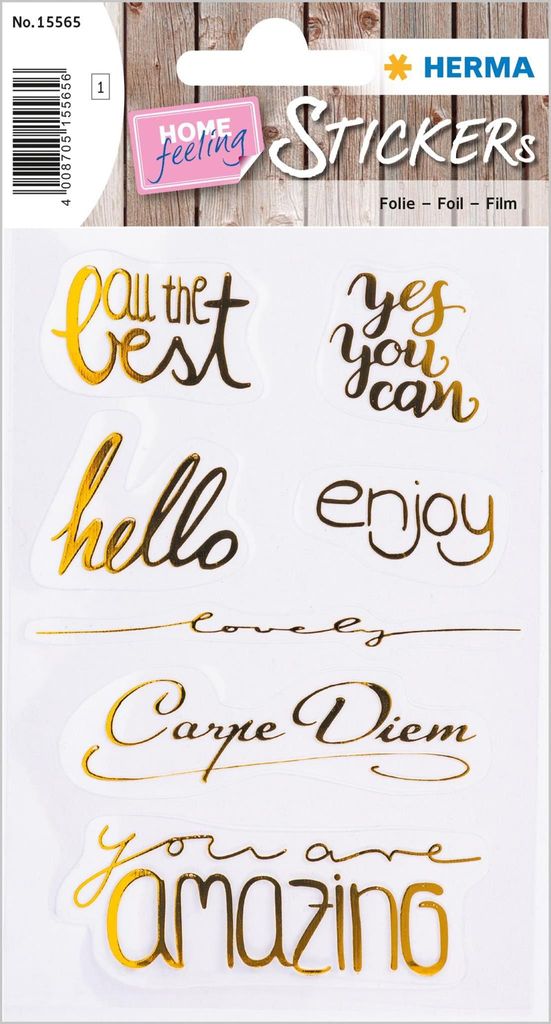 No.15565
4 008705 155656
1
HERMA
HOME
feeling
STICKERs
Folie – Foil – Film
all the
best
yes
you
can
hello
enjoy
lovely
Carpe Diem
you are
amazing